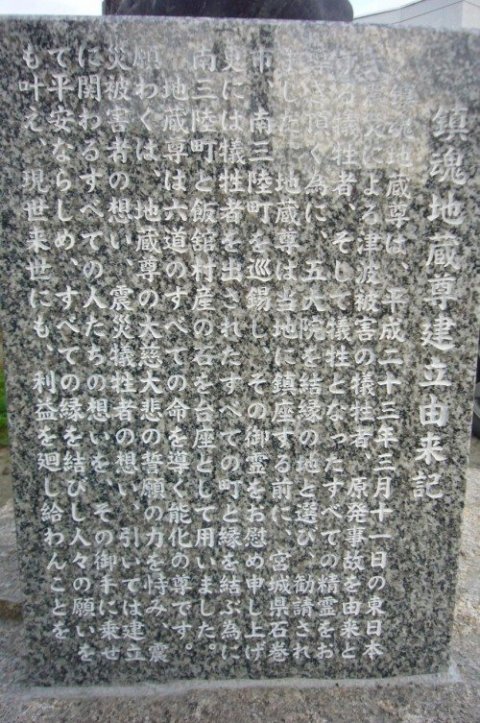 鎮魂地蔵尊建立由来記
鎮魂地蔵尊は、平成二十三年三月十一日の東日本
災による津波被害の犠牲者、原発事故を由来と
する犠牲者、そして犠牲となったすべての精霊をお
頂く為に、五大院を結縁の地と選び、勧請され
ました。地蔵尊は当地に鎮座する前に、宮城県石巻
市、南三陸町を巡錫し、その御霊をお慰め申し上げ
更には犠牲者を出されたすべての町と縁を結ぶ為に
南三陸町と飯舘村産の石を台座として用いました。
地蔵尊は六道のすべての命を導く能化の尊です。
願わくは、地蔵尊の大慈大悲の誓願の力を恃み、震
災被害者の想い、震災犠牲者の想い、引いては建立
に関わるすべての人たちの想いを、その御手に乗せ
て平安ならしめ、すべての縁を結びし人々の願いを
も叶え、現世来世にも、利益を廻し給わんことを